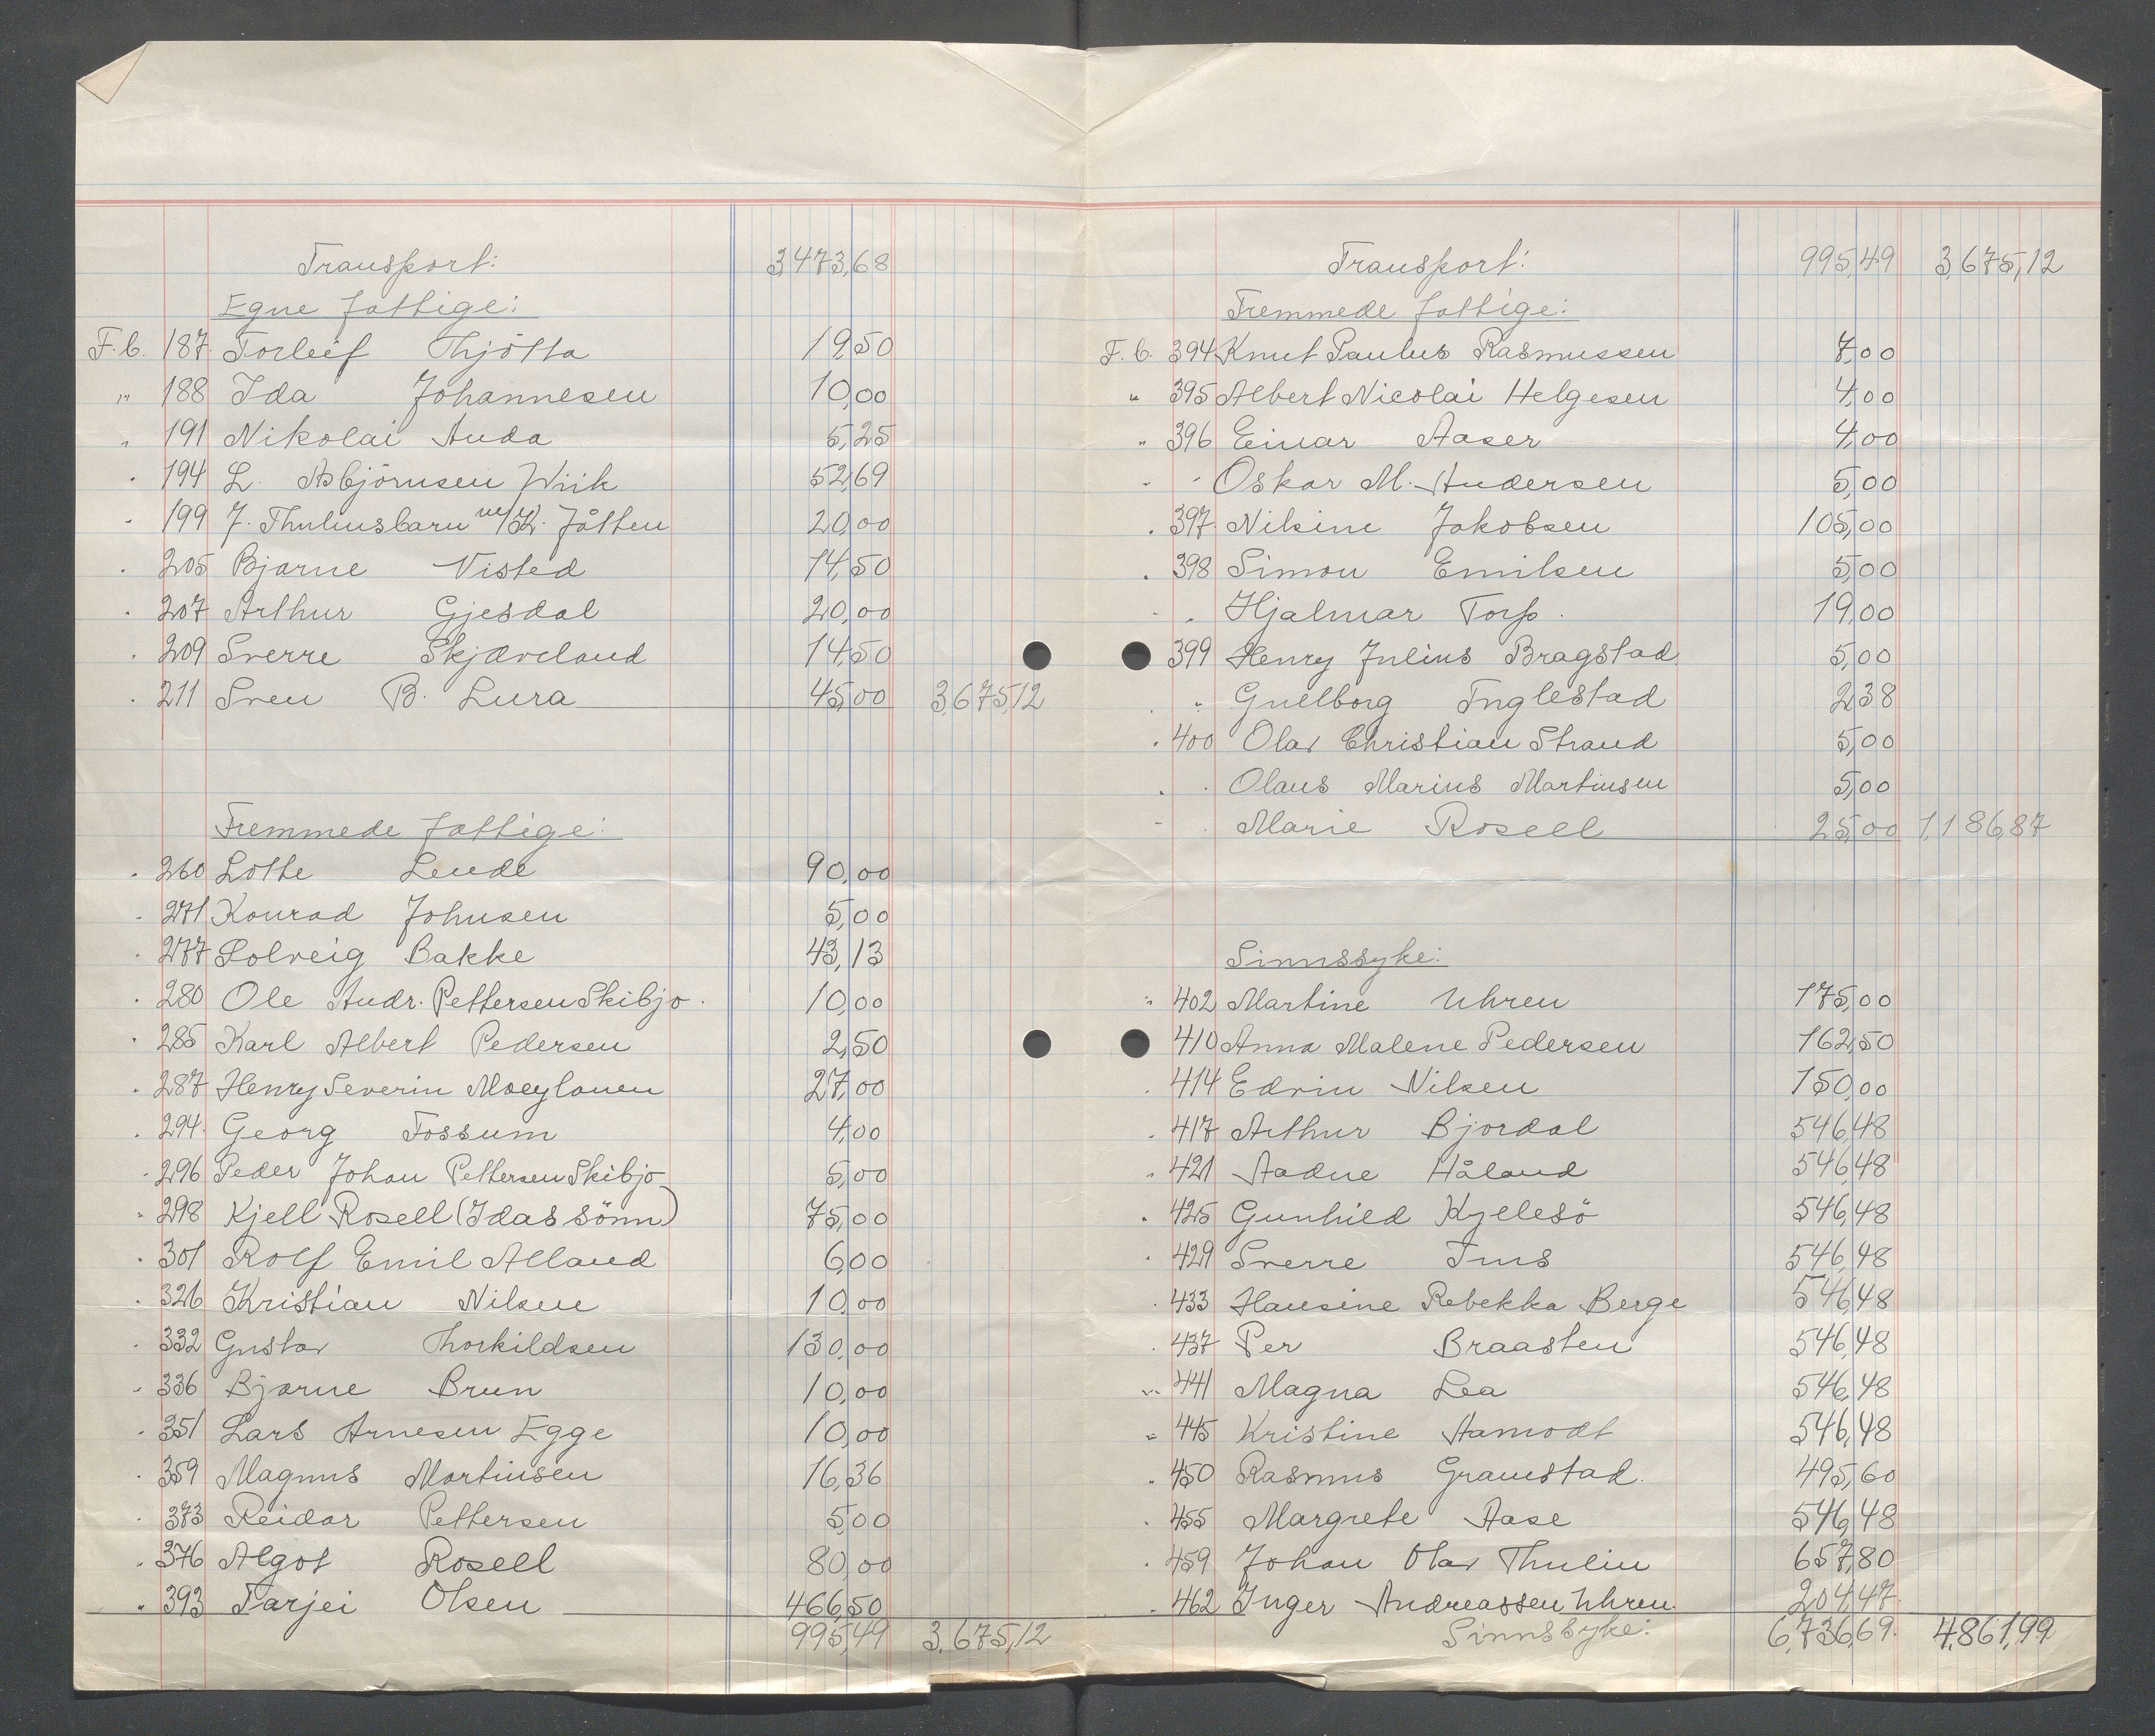 Transport: 3,473,68
Egne fattige:
F.b. 187 Torleif Thjötta 19,50
" 188 Ida Johannesen 10,00
" 191 Nikolai Auda 5,25
" 194 L. Asbjörnsen Wiik 52,69
" 199 J. Thulinsbarn m/K. Jåtten 20,00
" 205 Bjarne Visted 14,50
" 207 Arthur Gjesdal 20,00
" 209 Sverre Skjæveland 14,50
" 211 Sven B. Lura 45,00 3,675,12
Fremmede fattige:
" 260 Lotte Lende 90,00
" 271 Konrad Johnsen 5,00
" 277 Solveig Bakke 43,13
" 280 Ole Andr. Pettersen Skibjo. 10,00
" 285 Karl Albert Pedersen 2,50
" 287 Henry Severin Moeylanen 27,00
" 294 Georg Fossum 4,00
" 296 Peder Johan Pettersen Skibjo 5,00
" 298 Kjell Rosell (Idas sönn) 75,00
" 301 Rolf Emil Alland 6,00
" 326 Kristian Nilsen 10,00
" 332 Gustav Thorkildsen 130,00
" 336 Bjarne Brun 10,00
" 351 Lars Arnesen Egge 10,00
" 359 Magnus Martinsen 16,36
" 373 Reidar Pettersen 5,00
" 376 Algot Rosell 80,00
" 393 Tarjei Olsen 466,50
995,49 3,675,12
Transport: 995,49 3,675,12
Fremmede fattige:
F.b. 394 Knut Paulus Rasmussen 7,00
" 395 Albert Nicolai Helgesen 4,00
" 396 Einar Aaser 4,00
" " Oskar M. Andersen 5,00
" 397 Nilsine Jakobsen 105,00
" 398 Simon Emilsen 5,00
" " Hjalmar Torp. 19,00
" 399 Henry Julius Bragstad 5,00
" " Guelborg Tnglestad 2,38
" 400 Olav Christian Strand 5,00
" " Olaus Marius Martinsen 5,00
" " Marie Rosell 25,00 1,186,87
Sinnssyke:
" 402 Martine Uhren 175,00
" 410 Anna Malene Pedersen 162,50
" 414 Edvin Nilsen 150,00
" 417 Arthur Bjordal 546,48
" 421 Aadne Håland 546,48
" 425 Gunhild Kyllesö 546,48
" 429 Sverre Ims 546,48
" 433 Hansine Rebekka Berge 546,48
" 437 Per Braasten 546,48
" 441 Magna Lea 546,48
" 445 Kristine Aamodt 546,48
" 450 Rasmus Gramstad. 495,60
" 455 Margrete Aase 546,48
" 459 Johan Olav Thulin 657,80
" 462 Inger Andreassen Uhren. 204,47
Sinnssyke: 6,736,69. 4,861,99